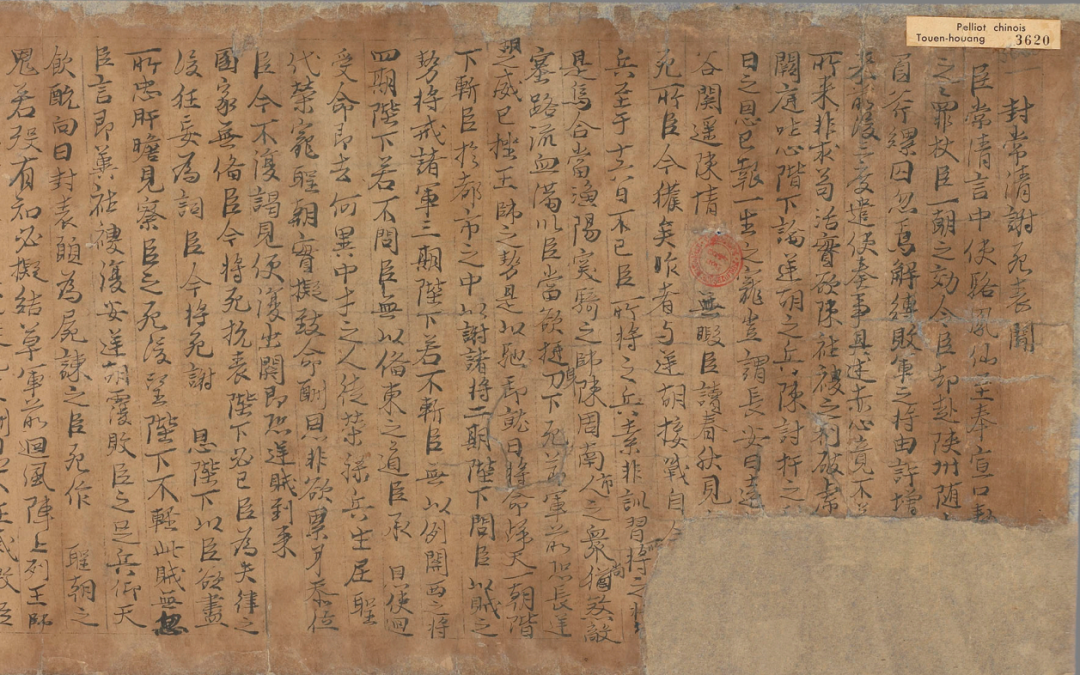 Pelliot chinois
Touen-houang 3620
一封常清謝死表聞
臣常清言中使駱奉仙至奉宣口勅
之罪投臣一朝之効令臣却赴陝州随
負斧縲囚忽焉解縛敗軍之将由許增
来前後三度遣使奉事具述赤心竟不
所来非求苟活實欲陳社稷之利破虎
闕庭吐心階下論逆胡之兵陳討扞之
日之恩已報一生之寵豈謂長安日遠
谷関遥陳情無暇臣讀春秋見
死所臣今獲矣昨者与逆胡接戰自今
兵至于十六日不已臣所将之兵素非訓習将之
是烏合當漁陽突騎之師陳周南市人之衆尚猶殺敵
塞路流血滿以臣當欲挺身刀下死前軍前恐長逆
胡之威已挫王師之勢是以馳即就日将命歸天一朝階
下斬臣於都市之中以謝諸将二期陛下問臣以賊之
勢将戒諸軍三期陛下若不斬臣無以例關西之将
四期陛下若不問臣無以俻東之道臣承恩使迴
受命即去何異中才之人徒榮祿兵生居聖
代榮寵聖朝實擬致命酬恩非欲与身忝位
臣今不復謁見便復出関即恐逆賊到来
國家無俻臣今将死抗表陛下必已臣為失律之
後任妄為詞臣今将死謝恩陛下以臣欲盡
所忠肝膽見察臣之死後望陛下不輕此賊無忽
臣言即冀社稷復安逆胡覆敗臣之足兵仰天
飲酖向日封表願為屍諫之臣死作聖朝之
鬼若殁有知必擬結草軍前迴風陣上列王師